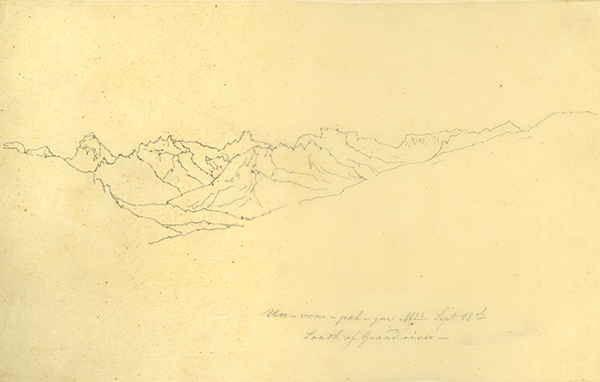 Un-com-pah-gre Mts Sept 13th
South of Grand river-